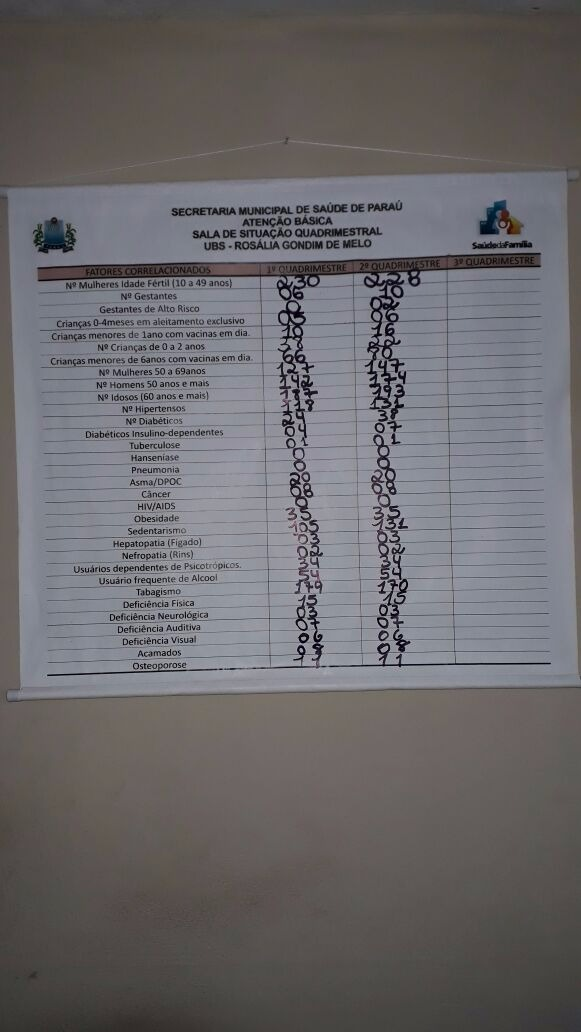 SECRETARIA MUNICIPAL DE SAÚDE DE PARAÚ
ATENÇÃO BÁSICA
SALA DE SITUAÇÃO QUADRIMESTRAL
UBS - ROSÁLIA GONDIM DE MELO
SaúdedaFamília
FATORES CORRELACIONADOS 1º QUADRIMESTRE 2º QUADRIMESTRE 3º QUADRIMESTRE
Nº Mulheres Idade Fértil (10 a 49 anos) 230 228
Nº Gestantes 06 10
Gestantes de Alto Risco
Crianças 0-4meses em aleitamento exclusivo
Crianças menores de 1ano com vacinas em dia. 10 16
Nº Crianças de 0 a 2 anos
Crianças menores de 6anos com vacinas em dia.
Nº Mulheres 50 a 69anos 147
Nº Homens 50 anos e mais 174
Nº Idosos (60 anos e mais)
Nº Hipertensos
Nº Diabéticos 38
Diabéticos Insulino-dependentes
Tuberculose 01 01
Hanseníase 00 00
Pneumonia 00 00
Asma/DPOC 20 20
Câncer 08 08
HIV/AIDS 00 00
Obesidade 35 35
Sedentarismo 105 131
Hepatopatia (Fígado) 03 03
Nefropatia (Rins) 02 02
Usuários dependentes de Psicotrópicos. 34 34
Usuário frequente de Alcool 54 54
Tabagismo 179 170
Deficiência Física 15 15
Deficiência Neurológica 03 03
Deficiência Auditiva 07 07
Deficiência Visual 06 06
Acamados 08
Osteoporose 11 11